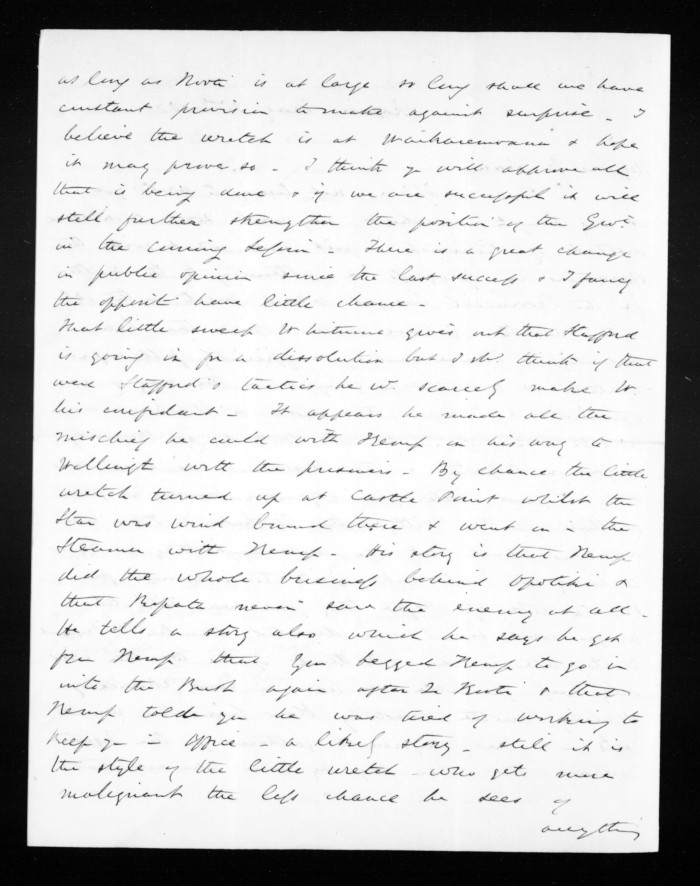 as long as Kooti is at large so long shall we have
constant provision to make against surprise - I
believe the wretch is at Waikaremoana & hope
it may prove so - I think you will approve all
that is being done & if we are successful it will
still further strengthen the position of the Govt.
in the coming Session - There is a great change
in public opinion since the last success & I fancy
the opposit have little chance -
That little sweep Whitmore gives out that Stafford
is going in for a dissolution but I shd. think if that
were Stafford's tactics he wd. scarcely make W.
his confidant - It appears he made all the
mischief he could with Kemp on his way to
Wellingt with the prisoners - By chance the little
wretch turned up at Castle Point whilst the
Star was wind bound there & went on in the
Steamer with Kemp - His story is that Kemp
did the whole business behind Opotiki &
that Ropata never saw the enemy at all -
He tells a story also which he says he got
from Kemp that you begged Kemp to go in
into the Bush again after Te Kooti & that
Kemp told you he was tired of working to
keep you in office - a likely story - still it is
the style of the little wretch - who gets more
malignant the less chance he sees of
anything